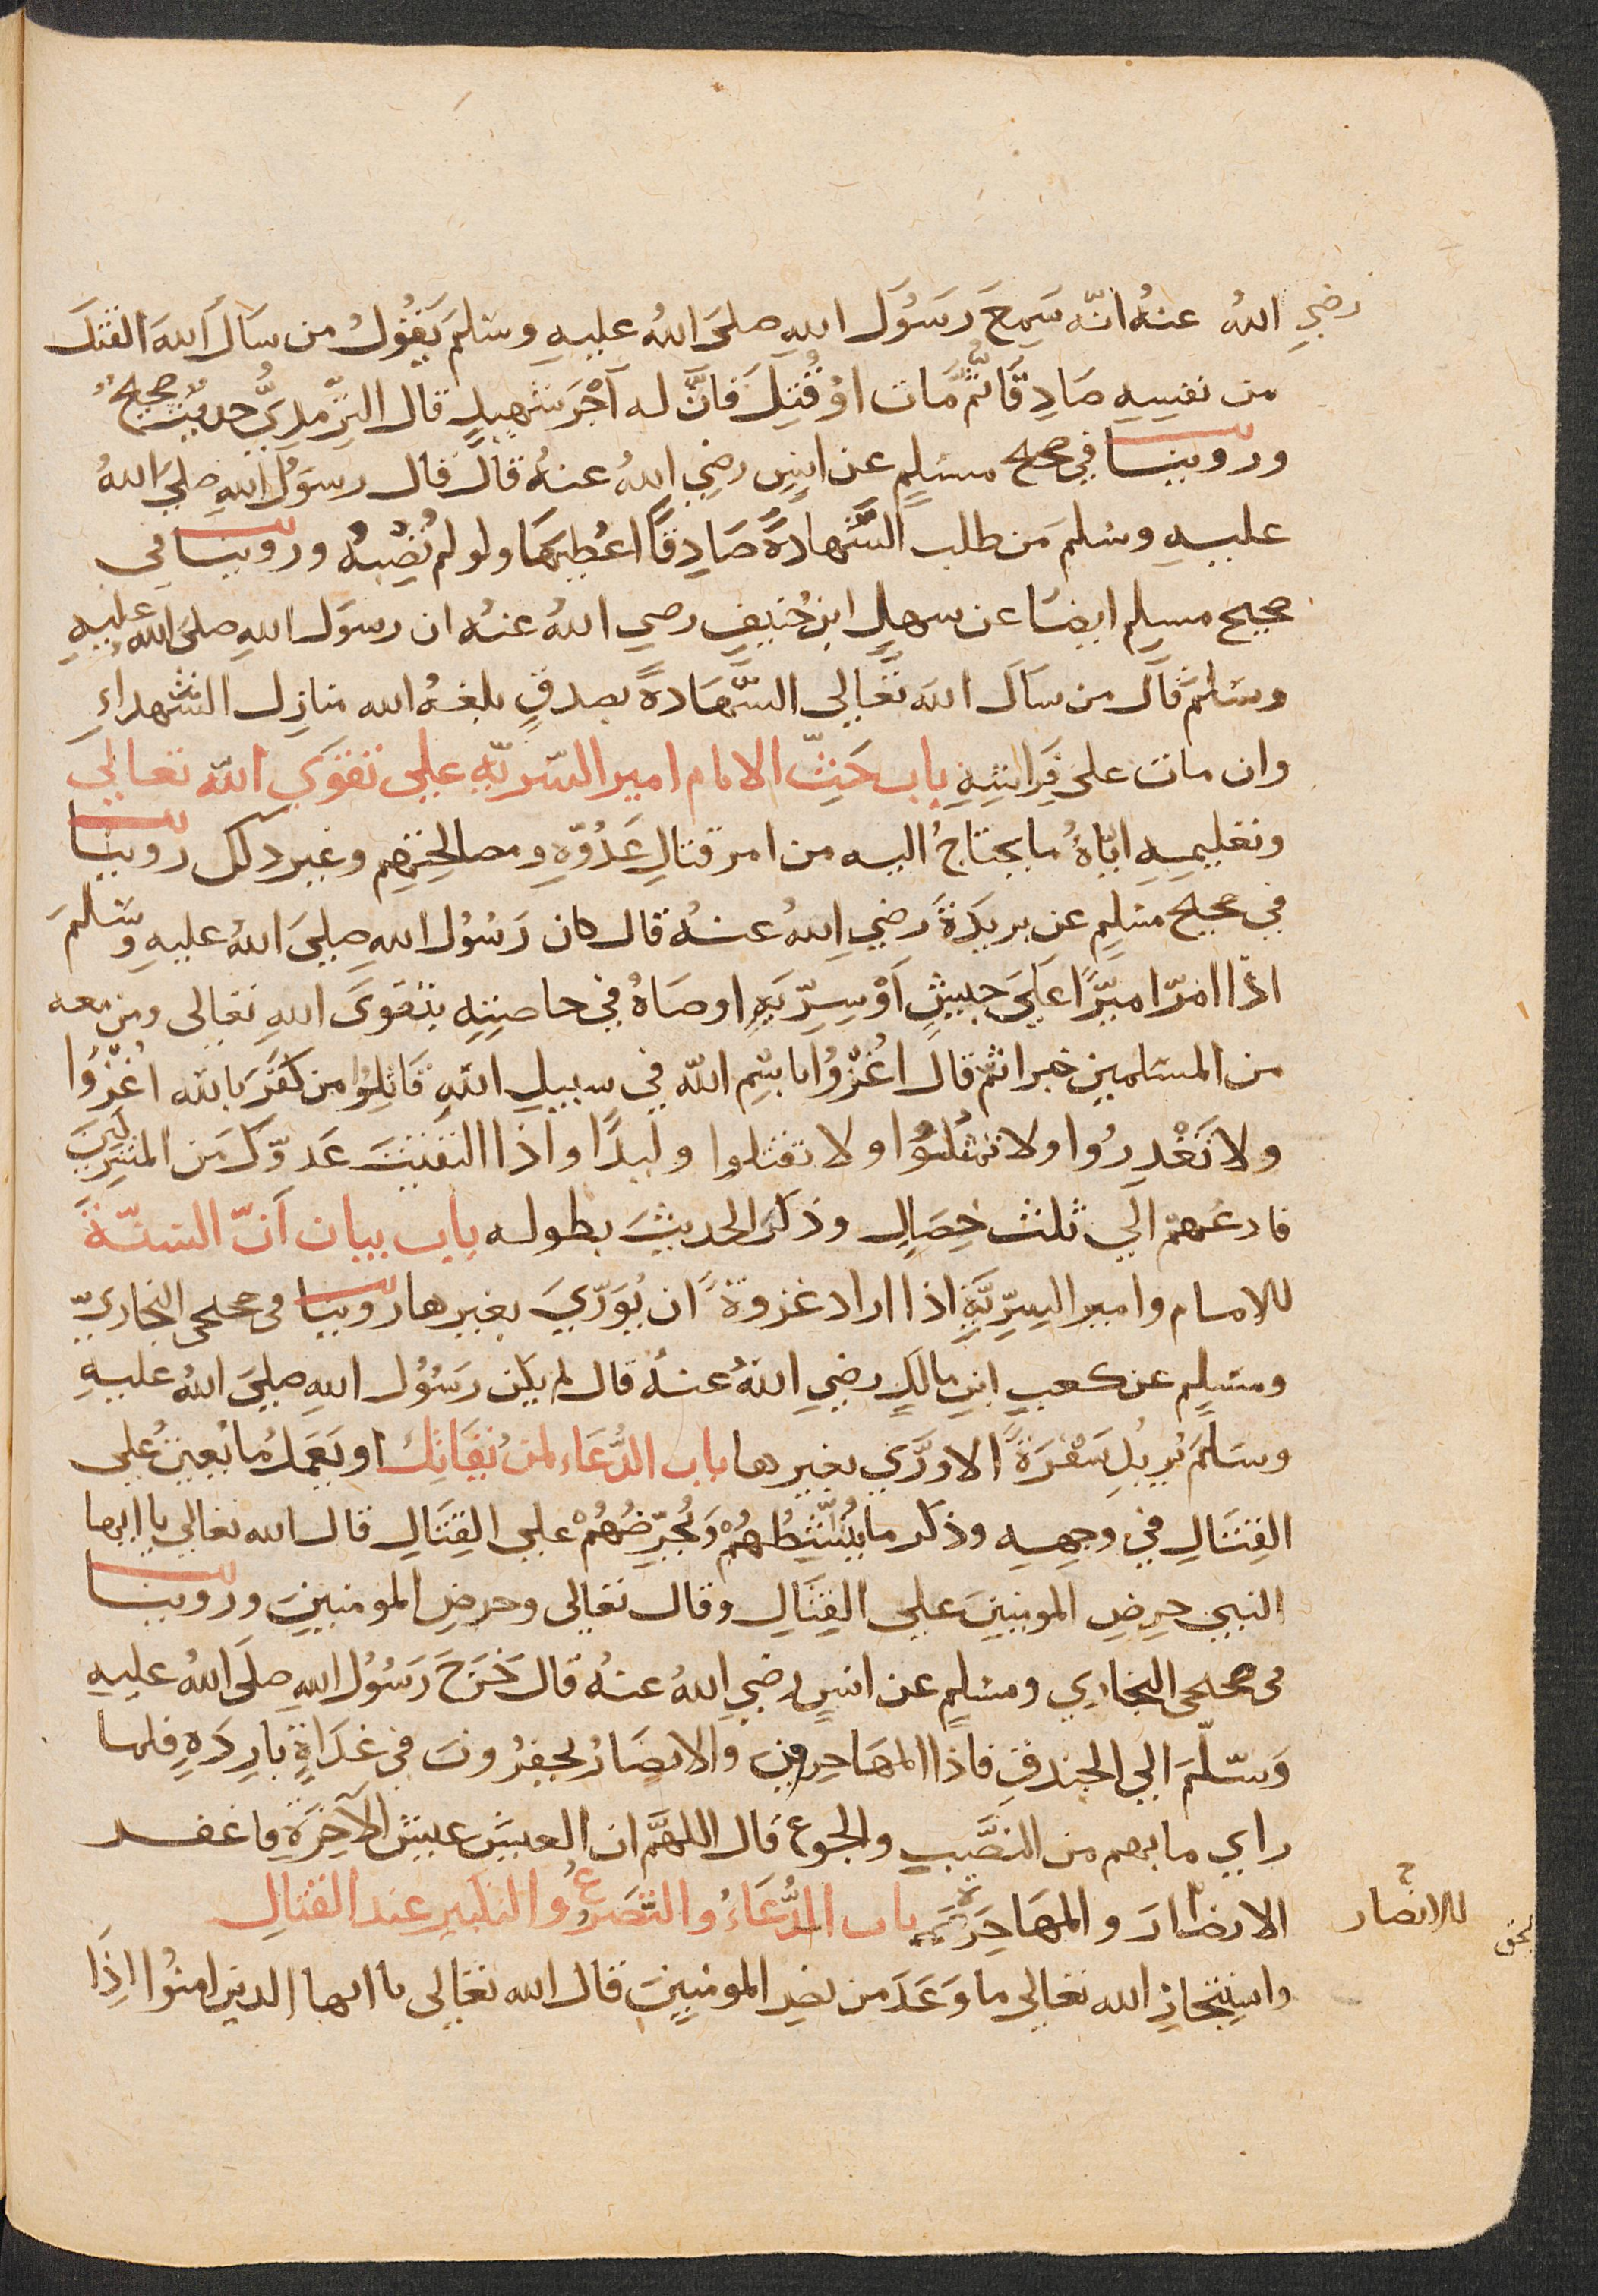 رضي الله عنه انّه سَمِعَ رَسُولَ اللهِ صلىَ اللهُ عليهِ وسَلمَ يَقُولُ من سَالَ اللهَ القتلَ
من نفسِهِ صَادِقًا ثُمَّ مَات اوْ قُتِلَ فَانَّ له اَجْرَ شهِيدٍ قال الترّمِذِيُّ حديثٌ صحيحٌ
وروينا في صحيح مسلِمٍ عن انسٍ رضِي اللهُ عنهُ قال قال رسوُلُ اللهِ صلي اللهُ
عليهِ وسلمَ من طلب الشَّهادةَ صَادِقًا اعُطِيَهَا ولو لم تُصِبْهُ وروينا في
صحيح مسلِم ايضًا عن سهلِ ابن حُنيفٍ رضي اللهُ عنهُ ان رسوَل اللهِ صلىَ اللهُ عليهِ
وسَلمَ قالَ من سَاَلَ اللهَ تَعَالى الشَّهَادةَ بصدقٍ بلغهُ الله منازِل الشهداءِ
وان مات على فِرَاشِهِ باب حَثِّ الامام امير السّريّةِ علي تقوَي الله تعالي
وتعليمِهِ ايّاهُ ما يحتاجُ اليه من امر قتالِ عَدُوِّهِ ومصالحتِهِم وغير ذلك روينا
في صحيح مسلِمٍ عن بريدَةَ رضي اللهُ عنهُ قال كان رَسُوُل اللهِ صليَ اللهُ عليهِ وسَلمَ
اذَا امرّ اميرًا عَليَ جيشٍ اَوْ سِرّيَةٍ اوصَاهُ في خاصتِهِ بتقوىَ اللهِ تعالى ومن معه
من المسلمين خيرا ثم قالَ اغُزْوُا باسْمِ اللهِ في سبيلِ اللهِ قَاتِلوُا من كَفَرَ بالله اغُزْوَا
ولا تَغْدِروُا ولا تمثلوُا ولا تقتلوا وليدًا واذا لقيتَ عَدوّكَ من المشرِكينَ
فادعُهمْ الي ثلثِ خِصَالٍ وذكرَ الحديثَ بطوله باب بيان اَنّ السّنّةَ
للامام وامير السِرِيَّةِ اذا اراد غزوةً ان يُوَرّيَ بغيرها روينا في صحيحي البخاريِّ
ومسلِمٍ عن كعبِ ابنِ مالكٍ رضي اللهُ عنهُ قال لم يكن رَسُوُل اللهِ صليَ اللهُ عليهِ
وسَلمَ يُريدُ سَفْرَةً الا ورَّي بغيرها باب الدُّعَاء لمن يُقَاتِلُ او يَعَملُ ما يعينُ علي
القِتَالِ في وجهِهِ وذكر ما يُنَشِّطُهُمْ وَيُحَرِّضُهُمْ علي القِتَالِ قال الله تعالي يا ايها
النبي حرِضِ المومنينَ علي القِتَالِ وقال تعالى وحرضِ المومنينَ وروينا
في صحيحي البخاري ومسلِمٍ عن انسٍ رضي اللهُ عنهُ قال خَرَجَ رَسُوُلُ اللهِ صلَى اللهُ عليهِ
وَسّلمَ الي الخندقِ فاذَا المهَاجِروُنَ والانصَارُ يحفرُونَ في غَدَاةٍ بارِدَهٍ فلما
راي ما بهم من النصَّبِ والجوع قال اللهمَّ ان العيشَ عيش الآخِرَةِ فاغفر
الانصارَ والمهَاجِرَة باب الدُّعَاءُ والتضرعُ والتكبيرِ عند القتالِ
للانصار
واستِنجازِ الله تعالي ما وَعَدَ من نصرِ المومنينَ قال الله تعالى يا ايها الذين امنوُا اِذَا